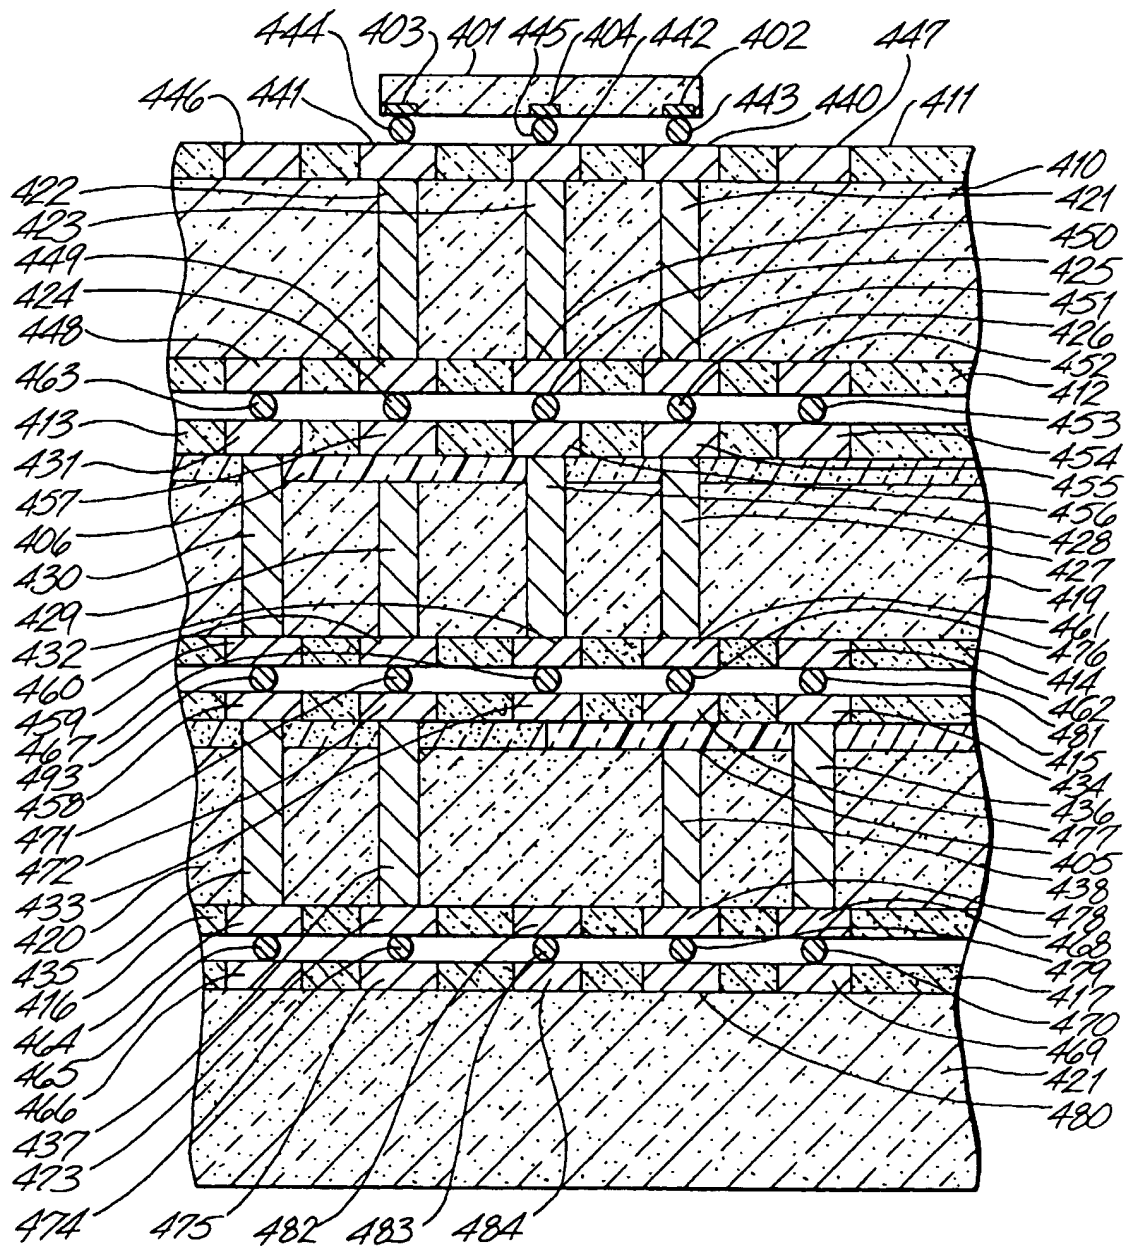 444 403 401 445 404 442 402 447
446 441 443 440 411
422
423
449
424
448
463
413
431
457
406
430
429
432
460
459
467
493
458
471
472
433
420
435
416
464
465
466
437
473
474 475 482 483 484
410
421
450
425
451
426
452
412
453
454
455
456
428
427
419
461
476
414
462
481
415
434
436
477
405
438
478
468
479
417
470
469
421
480